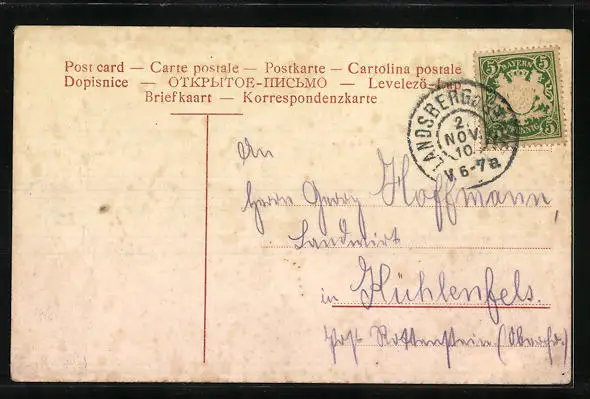 Post card — Carte postale — Postkarte — Cartolina postale
Dopisnice — ОТКРЫТОЕ-ПИСЬМО — Levelező-Lap
Briefkaart — Korrespondenzkarte
BAYERN
5 5
5 PFENNIG 5
LANDSBERG
2.
NOV.
10
V. 6-7
An
Herrn Georg Hoffmann,
Landwirt
in Kühlenfels.
Post Rottenstein (Oberfr.)